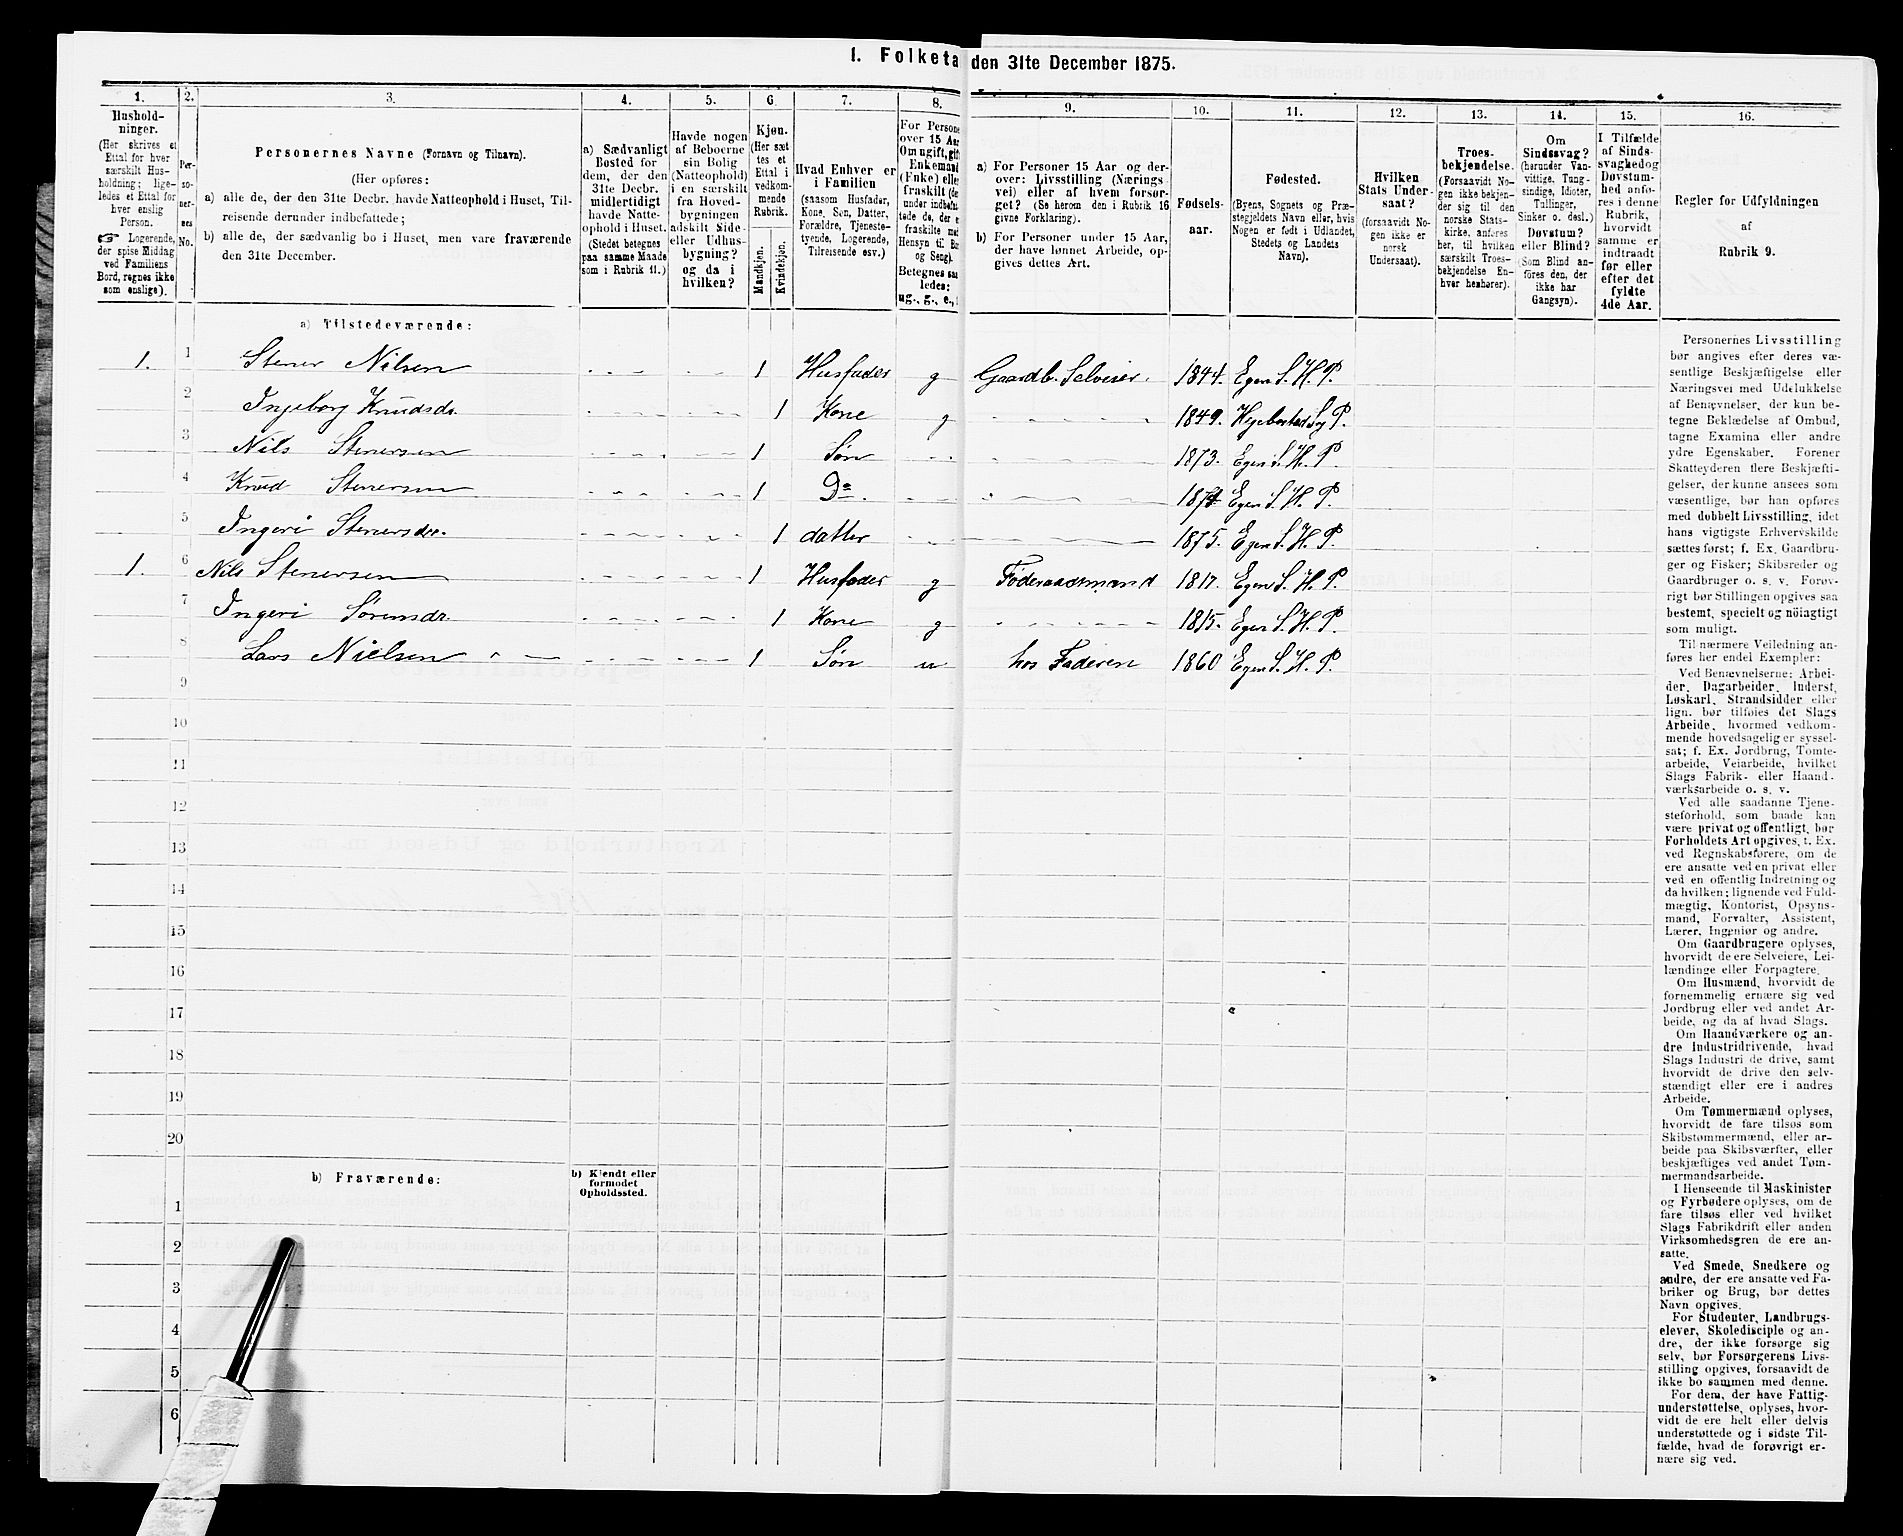 1. Folketa den 31te December 1875.
1. 2. 3. 4. 5. 6. 7. 8. 9. 10. 11. 12. 13. 14. 15. 16.
Hushold-
ninger.
(Her skrives et
Ettal for hver
særskilt Hus-
holdning; lige-
ledes et Ettal for
hver enslig
Person.
☞ Logerende,
der spise Middag
ved Familiens
Bord, regnes ikke
som enslige).
Per-
so-
ner-
nes
No.
Personernes Navne (Fornavn og Tilnavn).
(Her opføres:
a) alle de, der den 31te Decbr. havde Natteophold i Huset, Til-
reisende derunder indbefattede;
b) alle de, der sædvanlig bo i Huset, men vare fraværende
den 31te December.
a) Sædvanligt
Bosted for
dem, der den
31te Decbr.
midlertidigt
havde Natte-
ophold i Huset.
(Stedet betegnes
paa samme Maade
som i Rubrik 11.)
Havde nogen
af Beboerne
sin Bolig
(Natteophold)
i en særskilt
fra Hoved-
bygningen
adskilt Side-
eller Udhus-
bygning?
og da i
hvilken?
Kjøn.
(Her sæt
tes et
Ettal i
vedkom-
mende
Rubrik.
Mandkjøn.
Kvindekjøn.
Hvad Enhver er
i Familien
(saasom Husfader,
Kone, Søn, Datter,
Forældre, Tjeneste-
tyende, Logerende,
Tilreisende osv.)
For Persone
over 15 Aar
Om ugift, gift
Enkemand
(Enke) elle
fraskilt (de
under indbefat
tede de, der e
fraskilte med
Hensyn til Bo
og Seng).
Betegnes saa
ledes:
ug., g., e., f
a) For Personer 15 Aar og der-
over: Livsstilling (Nærings-
vei) eller af hvem forsør-
get? (Se herom den i Rubrik 16
givne Forklaring).
b) For Personer under 15 Aar,
der have lønnet Arbeide, op-
gives dettes Art.
Fødsels-
aar.
Fødested.
(Byens, Sognets og Præ-
stegjeldets Navn eller, hvis
Nogen er født i Udlandet,
Stedets og Landets
Navn).
Hvilken
Stats Under-
saat?
(forsaavidt No-
gen ikke er
norsk
Undersaat).
Troes-
bekjendelse.
(Forsaavidt No-
gen ikke bekjen-
der sig til den
norske Stats-
kirke, anføres
her, til hvilken
særskilt Troes-
bekjendelse En-
hver henhører).
Om
Sindssvag?
(herunder Van-
vittige, Tung-
sindige, Idioter,
Tullinger,
Sinker o. desl.)
Døvstum?
eller Blind?
(Som Blind an-
føres den, der
ikke har
Gangsyn).
I Tilfælde
af Sinds-
svaghed og
Døvstum-
hed anfø-
res i denne
Rubrik,
hvorvidt
samme er
indtraadt
før eller
efter det
fyldte
4de Aar.
Regler for Udfyldningen
af
Rubrik 9.
a) Tilstedeværende:
1. 1 Stener Nilsen 1 Husfader g Gaardb. Selveier. 1844. Egen S. H. P.
2 Ingeborg Knudsdr. 1 Kone g 1849. Hegebostad S. P.
3 Nils Stenersen 1 Søn 1873. Egen S. H. P.
4 Knud Stenersen 1 Do. 1874 Egen S. H. P.
5 Ingeri Stenersdr. 1 datter 1875. Egen S. H. P.
1. 6 Nils Stenersen 1 Husfader g Føderaadsmand 1817. Egen S. H. P.
7 Ingeri Sørensdr. 1 Kone g 1815. Egen S. H. P.
8 Lars Nielsen 1 Søn u hos Faderen 1860 Egen S. H. P.
9
10
11
12
13
14
15
16
17
18
19
20
b) Fraværende:
b) Kjendt eller
formodet
Opholdssted.
1
2
3
4
5
6
Personernes Livsstilling
bør angives efter deres væ-
sentlige Beskjæftigelse eller
Næringsvei med Udelukkelse
af Benævnelser, der kun be-
tegne Beklædelse af Ombud,
tagne Examina eller andre
ydre Egenskaber. Forener
Skatteyderen flere Beskjæfti-
gelser, der kunne ansees som
væsentlige, bør han opføres
med dobbelt Livsstilling, idet
hans vigtigste Erhvervskilde
sættes først; f. Ex. Gaardbru-
ger og Fisker; Skibsreder og
Gaardbruger o. s. v. Forøv-
rigt bør Stillingen opgives saa
bestemt, specielt og nöiagtigt
som muligt.
Til nærmere Veiledning an-
føres her endel Exempler:
Ved Benævnelserne: Arbei-
der, Dagarbeider, Inderst,
Løskarl, Strandsidder eller
lign. bør tilføies det Slags
Arbeide, hvormed vedkom-
mende hovedsagelig er syssel-
sat; f. Ex. Jordbrug, Tomte-
arbeide, Veiarbeide, hvilket
Slags Fabrik- eller Haand-
værksarbeide o. s. v.
Ved alle saadanne Tjene-
steforhold, som baade kan
være privat og offentligt, bør
Forholdets Art opgives, f. Ex.
ved Regnskabsførere, om de
ere ansatte ved en privat eller
ved en offentlig Indretning og
da hvilken; lignende ved Fuld-
mægtig, Kontorist, Opsyns-
mand, Forvalter, Assistent,
Lærer, Ingeniør og andre.
Om Gaardbrugere oplyses,
hvorvidt de ere Selveiere, Lei-
lændinge eller Forpagtere.
Om Husmænd, hvorvidt de
fornemmelig ernære sig ved
Jordbrug eller ved andet Ar-
beide, og da af hvad Slags.
Om Haandværkere og an-
dre Industridrivende, hvad
Slags Industri de drive, samt
hvorvidt de drive den selv-
stændigt eller ere i andres
Arbeide.
Om Tømmermænd oplyses,
hvorvidt de fare tilsøs som
Skibstømmermænd, eller ar-
beide paa Skibsværfter, eller
beskjæftiges ved andet Tøm-
mermandsarbeide.
I Henseende til Maskinister
og Fyrbødere oplyses, om de
fare tilsøs eller ved hvilket
Slags Fabrikdrift eller anden
Virksomhedsgren de ere an-
satte.
Ved Smede, Snedkere og
andre, der ere ansatte ved Fa-
briker og Brug, bør dettes
Navn opgives.
For Studenter, Landbrugs-
elever, Skoledisciple og an-
dre, der ikke forsørge sig
selv, bør Forsørgerens Livs-
stilling opgives, forsaavidt de
ikke bo sammen med denne.
For dem, der have Fattig-
understøttelse, oplyses, hvor-
vidt de ere helt eller delvis
understøttede og i sidste Til-
fælde, hvad de forøvrigt er-
nære sig ved.